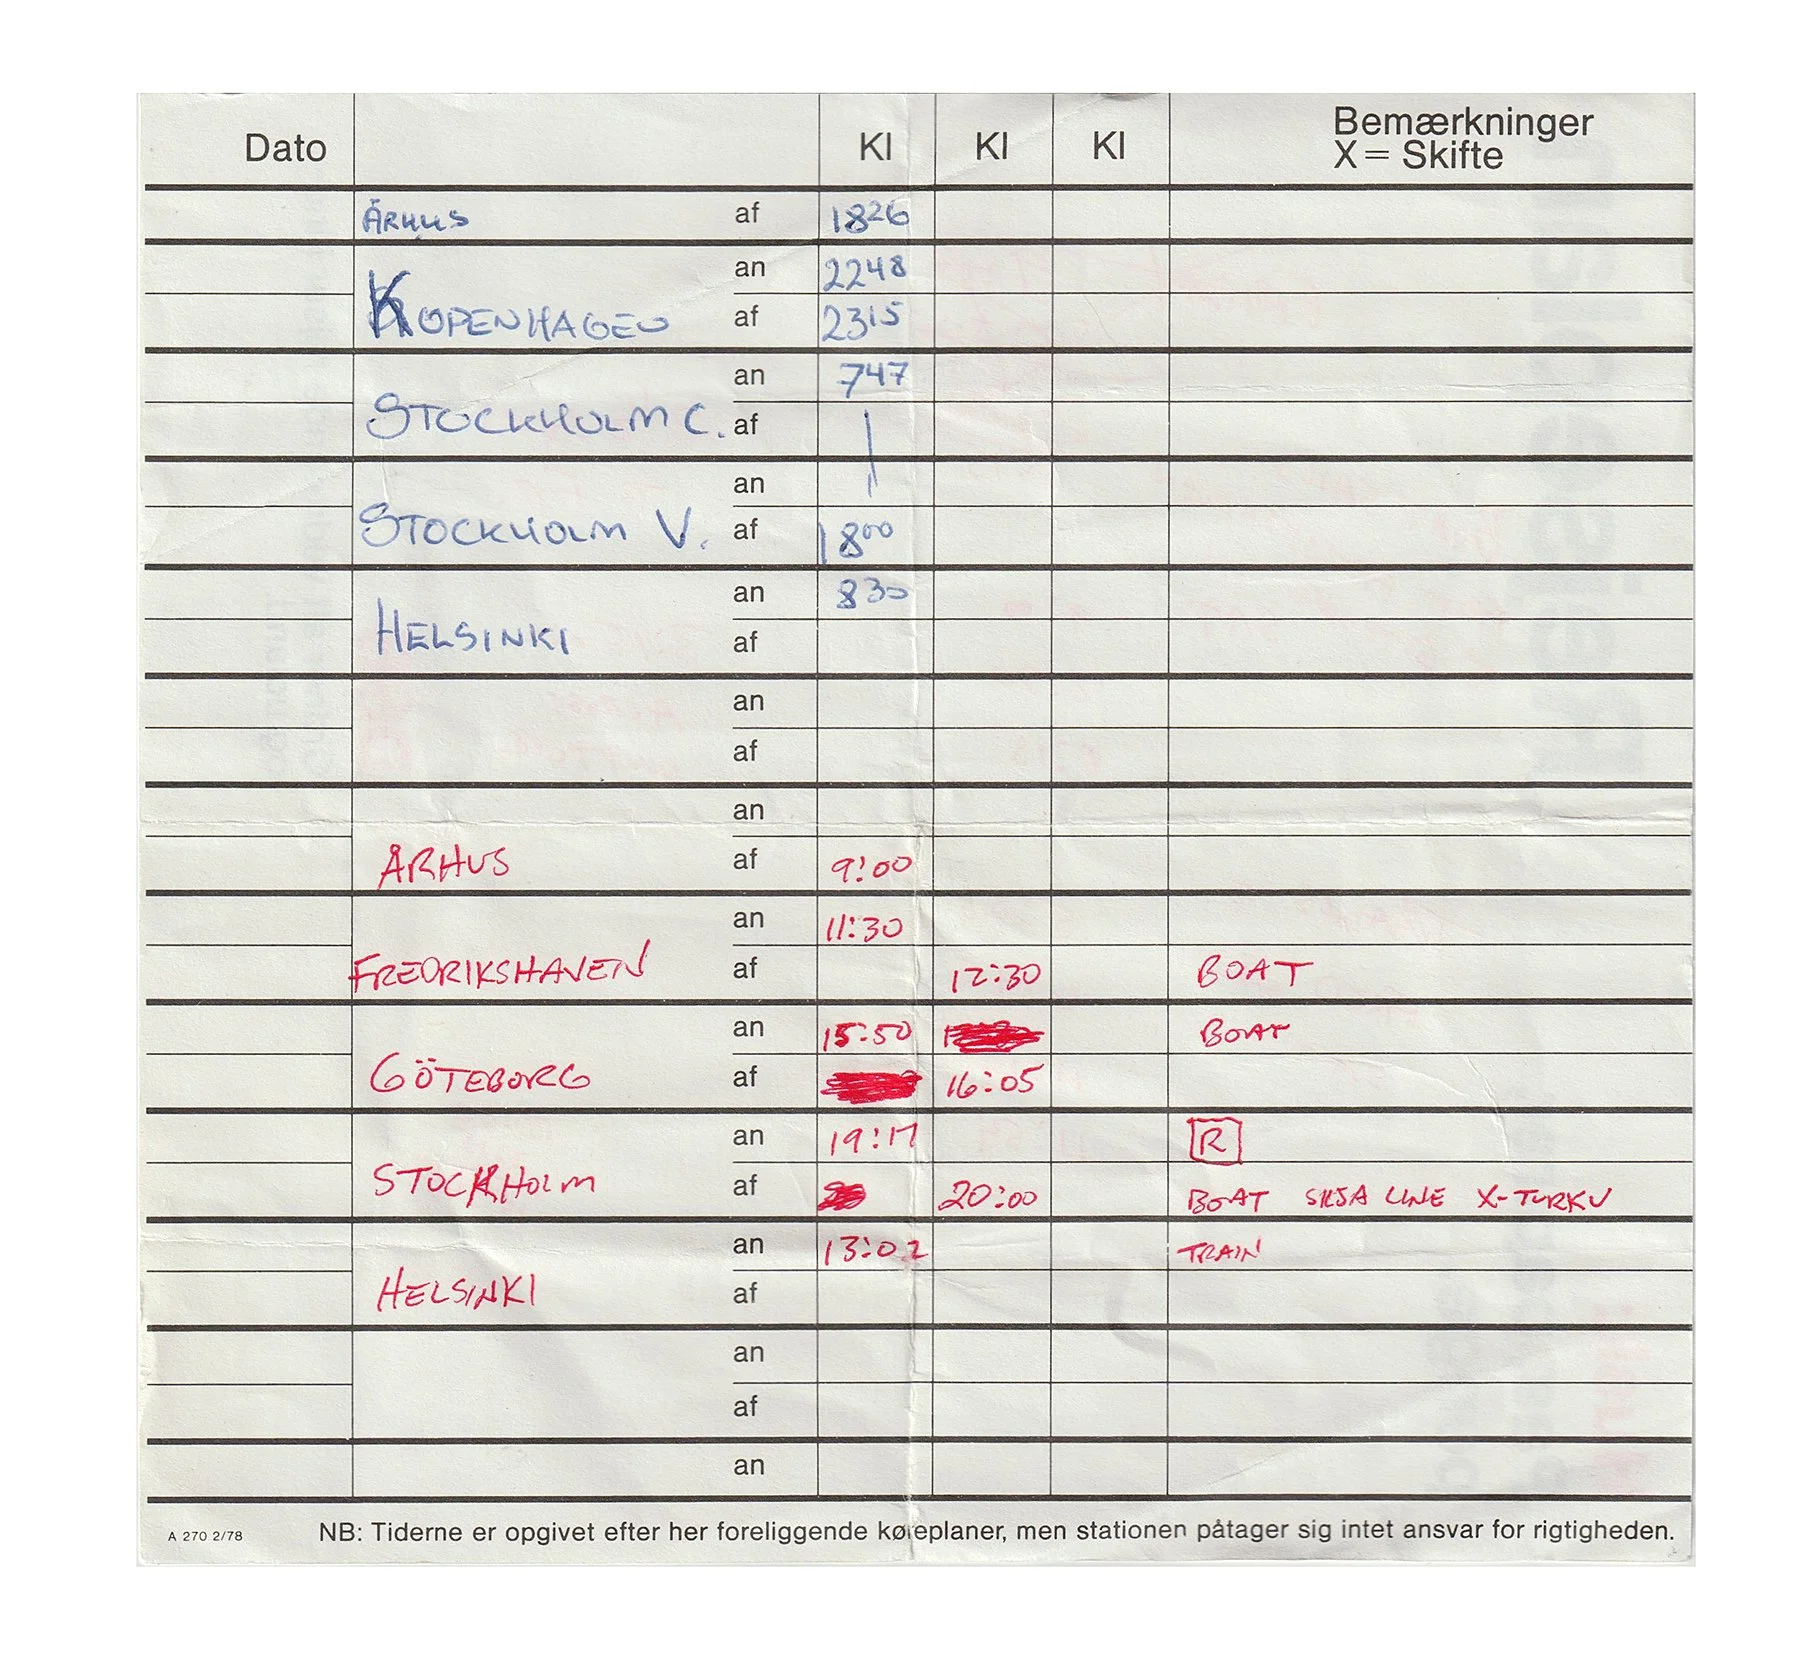 Dato Kl Kl Kl Bemærkninger
X = Skifte
ÅRHUS af 1826
an 2248
KOPENHAGEN af 2315
an 747
STOCKHOLM C. af
an
STOCKHOLM V. af 1800
an 830
HELSINKI af
an
af
an
ÅRHUS af 9:00
an 11:30
FREDRIKSHAVEN af 12:30 BOAT
an 15:50 BOAT
GÖTEBORG af 16:05
an 19:17 R
STOCKHOLM af 20:00 BOAT SILJA LINE X-TURKU
an 13:02 TRAIN
HELSINKI af
an
af
an
A 270 2/78 NB: Tiderne er opgivet efter her foreliggende køreplaner, men stationen påtager sig intet ansvar for rigtigheden.